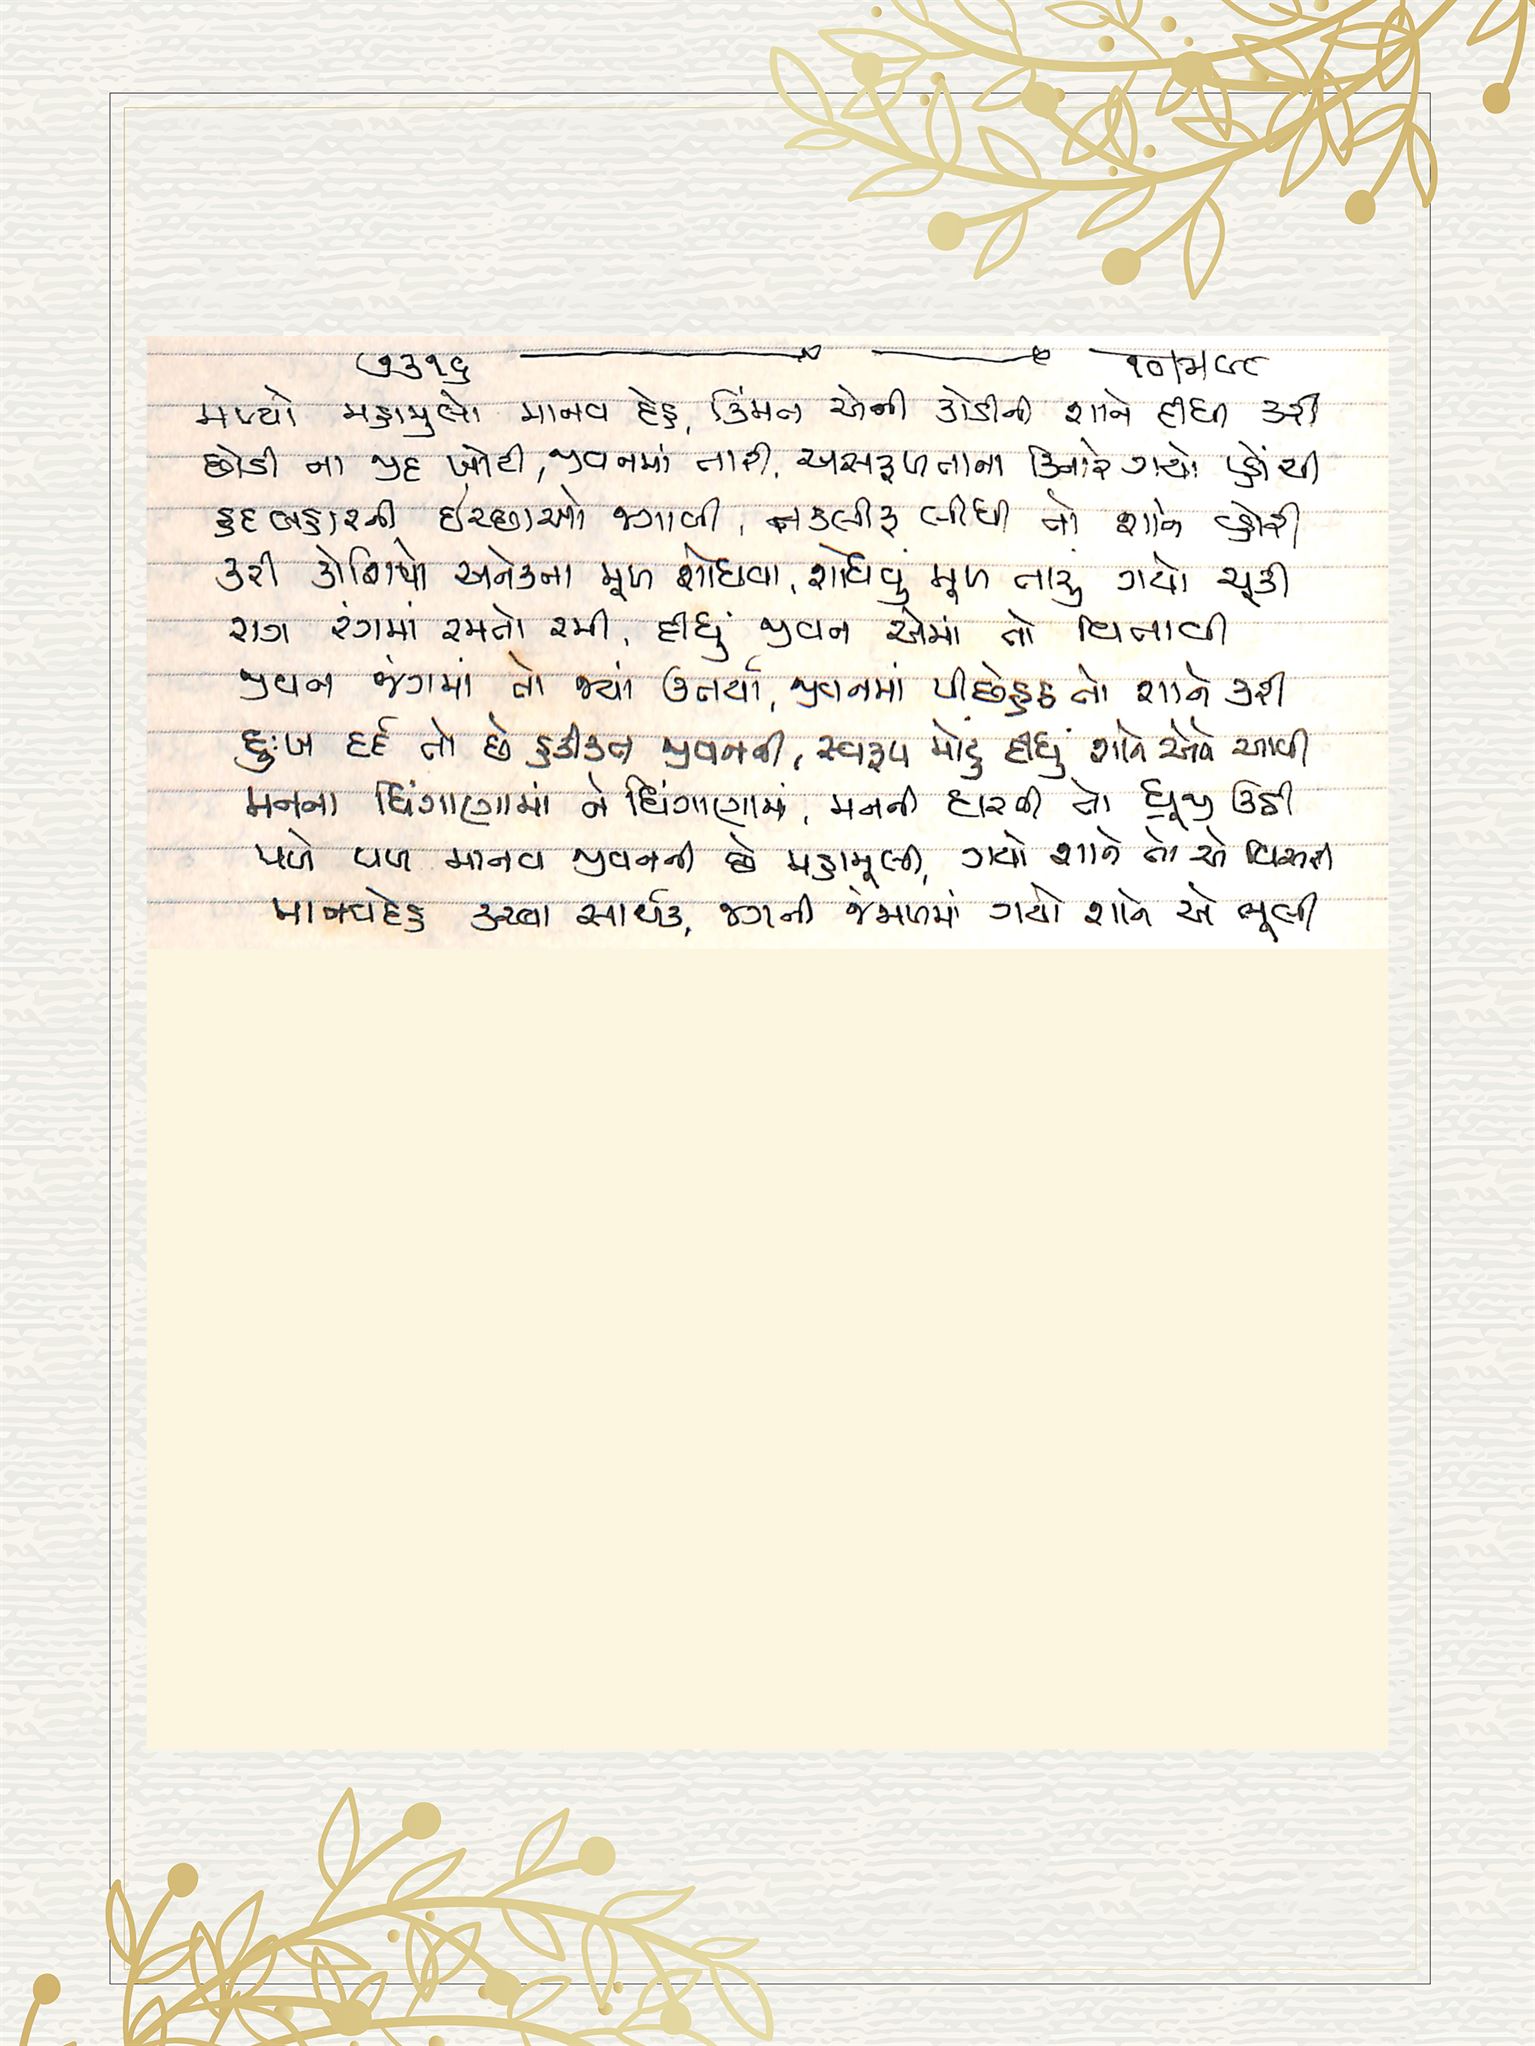 ૭૩૧૬
મળ્યો મહામુલો માનવ દેહ, કિંમત એની કોડીની શાને દીધી કરી
છોડી ના જીદ ખોટી, જીવનમાં તારી, અસફળતાના કિનારે ગયો પ્હોંચી
હદ બહારની ઇચ્છાઓ જગાવી, તકલીફ લીધી તો શાને વ્હોરી
કરી કોશિશો અનેકના મૂળ શોધવા, શોધવું મૂળ તારું ગયો ચૂકી
રાગ રંગમાં રમતો રમી, દીધું જીવન એમાં તો વિતાવી
જીવન જંગમાં તો જ્યાં ઉતર્યા, જીવનમાં પીછેહઠ તો શાને કરી
દુઃખ દર્દ તો છે હકીકત જીવનની, સ્વરૂપ મોટું દીધું શાને એને આપી
મનના ધિંગાણામાં ને ધિંગાણામાં, મનની ધરતી તો ધ્રૂજી ઊઠી
પળે પળ માનવ જીવનની છે મહામૂલી, ગયો શાને તો એ વિસરી
માનવદેહ કરવા સાર્થક, જગની જંજાળમાં ગયો શાને એ ભૂલી